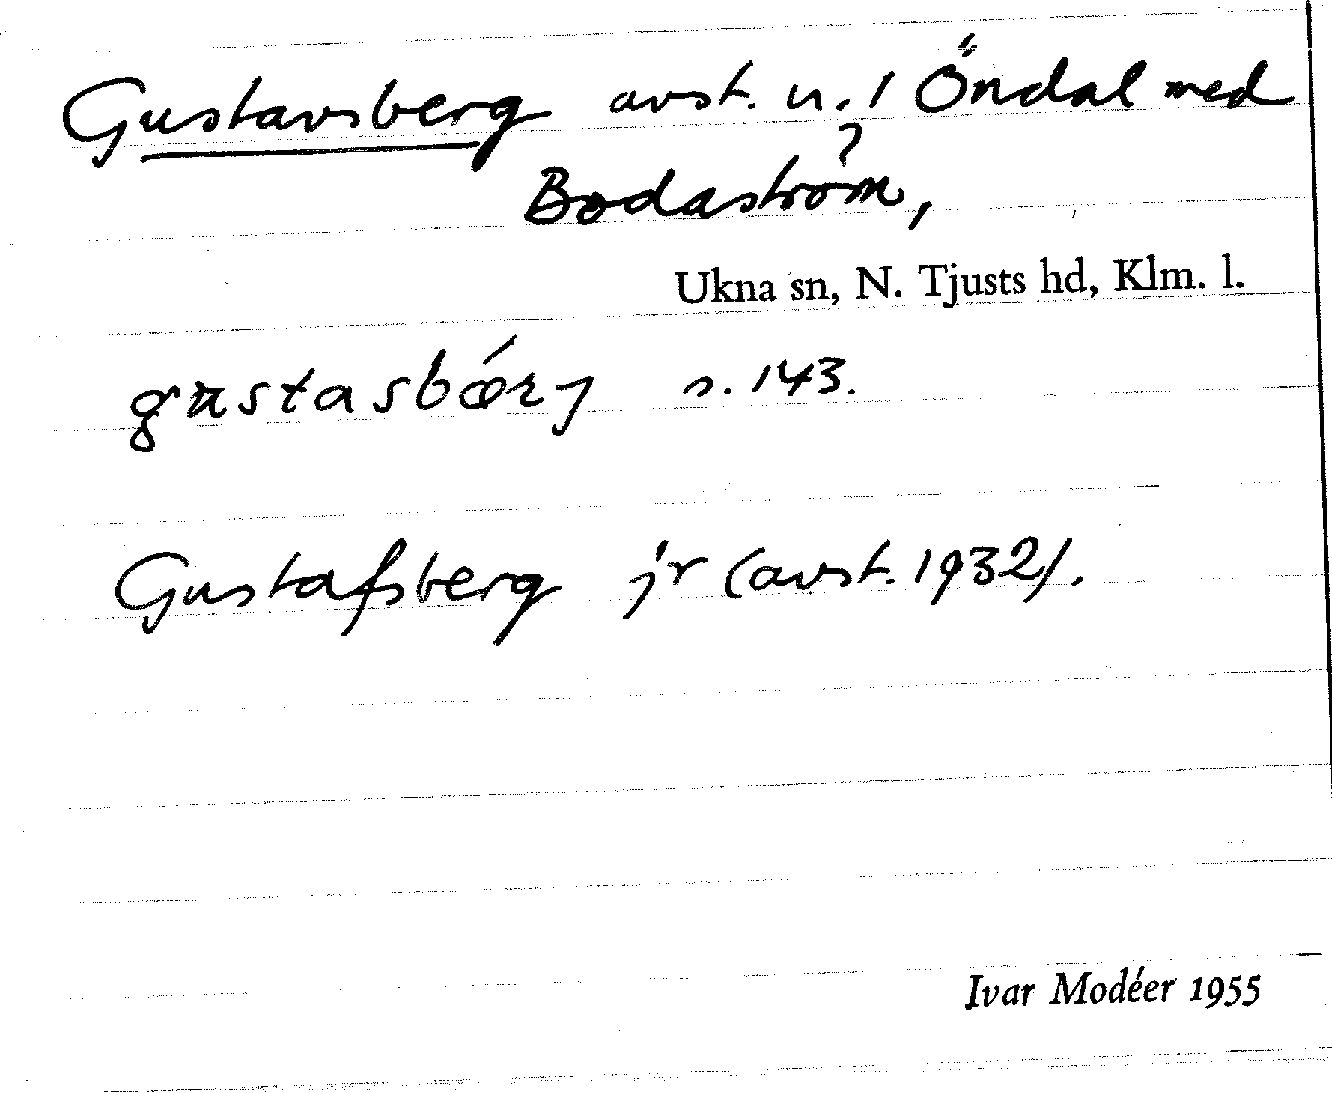 Gustavsberg avst. u. 1 Öndal med
Bodaström,
Ukna sn, N. Tjusts hd, Klm. l.
gustasbǽrj s. 143.
Gustafsberg jr (avst. 1932).
Ivar Modéer 1955